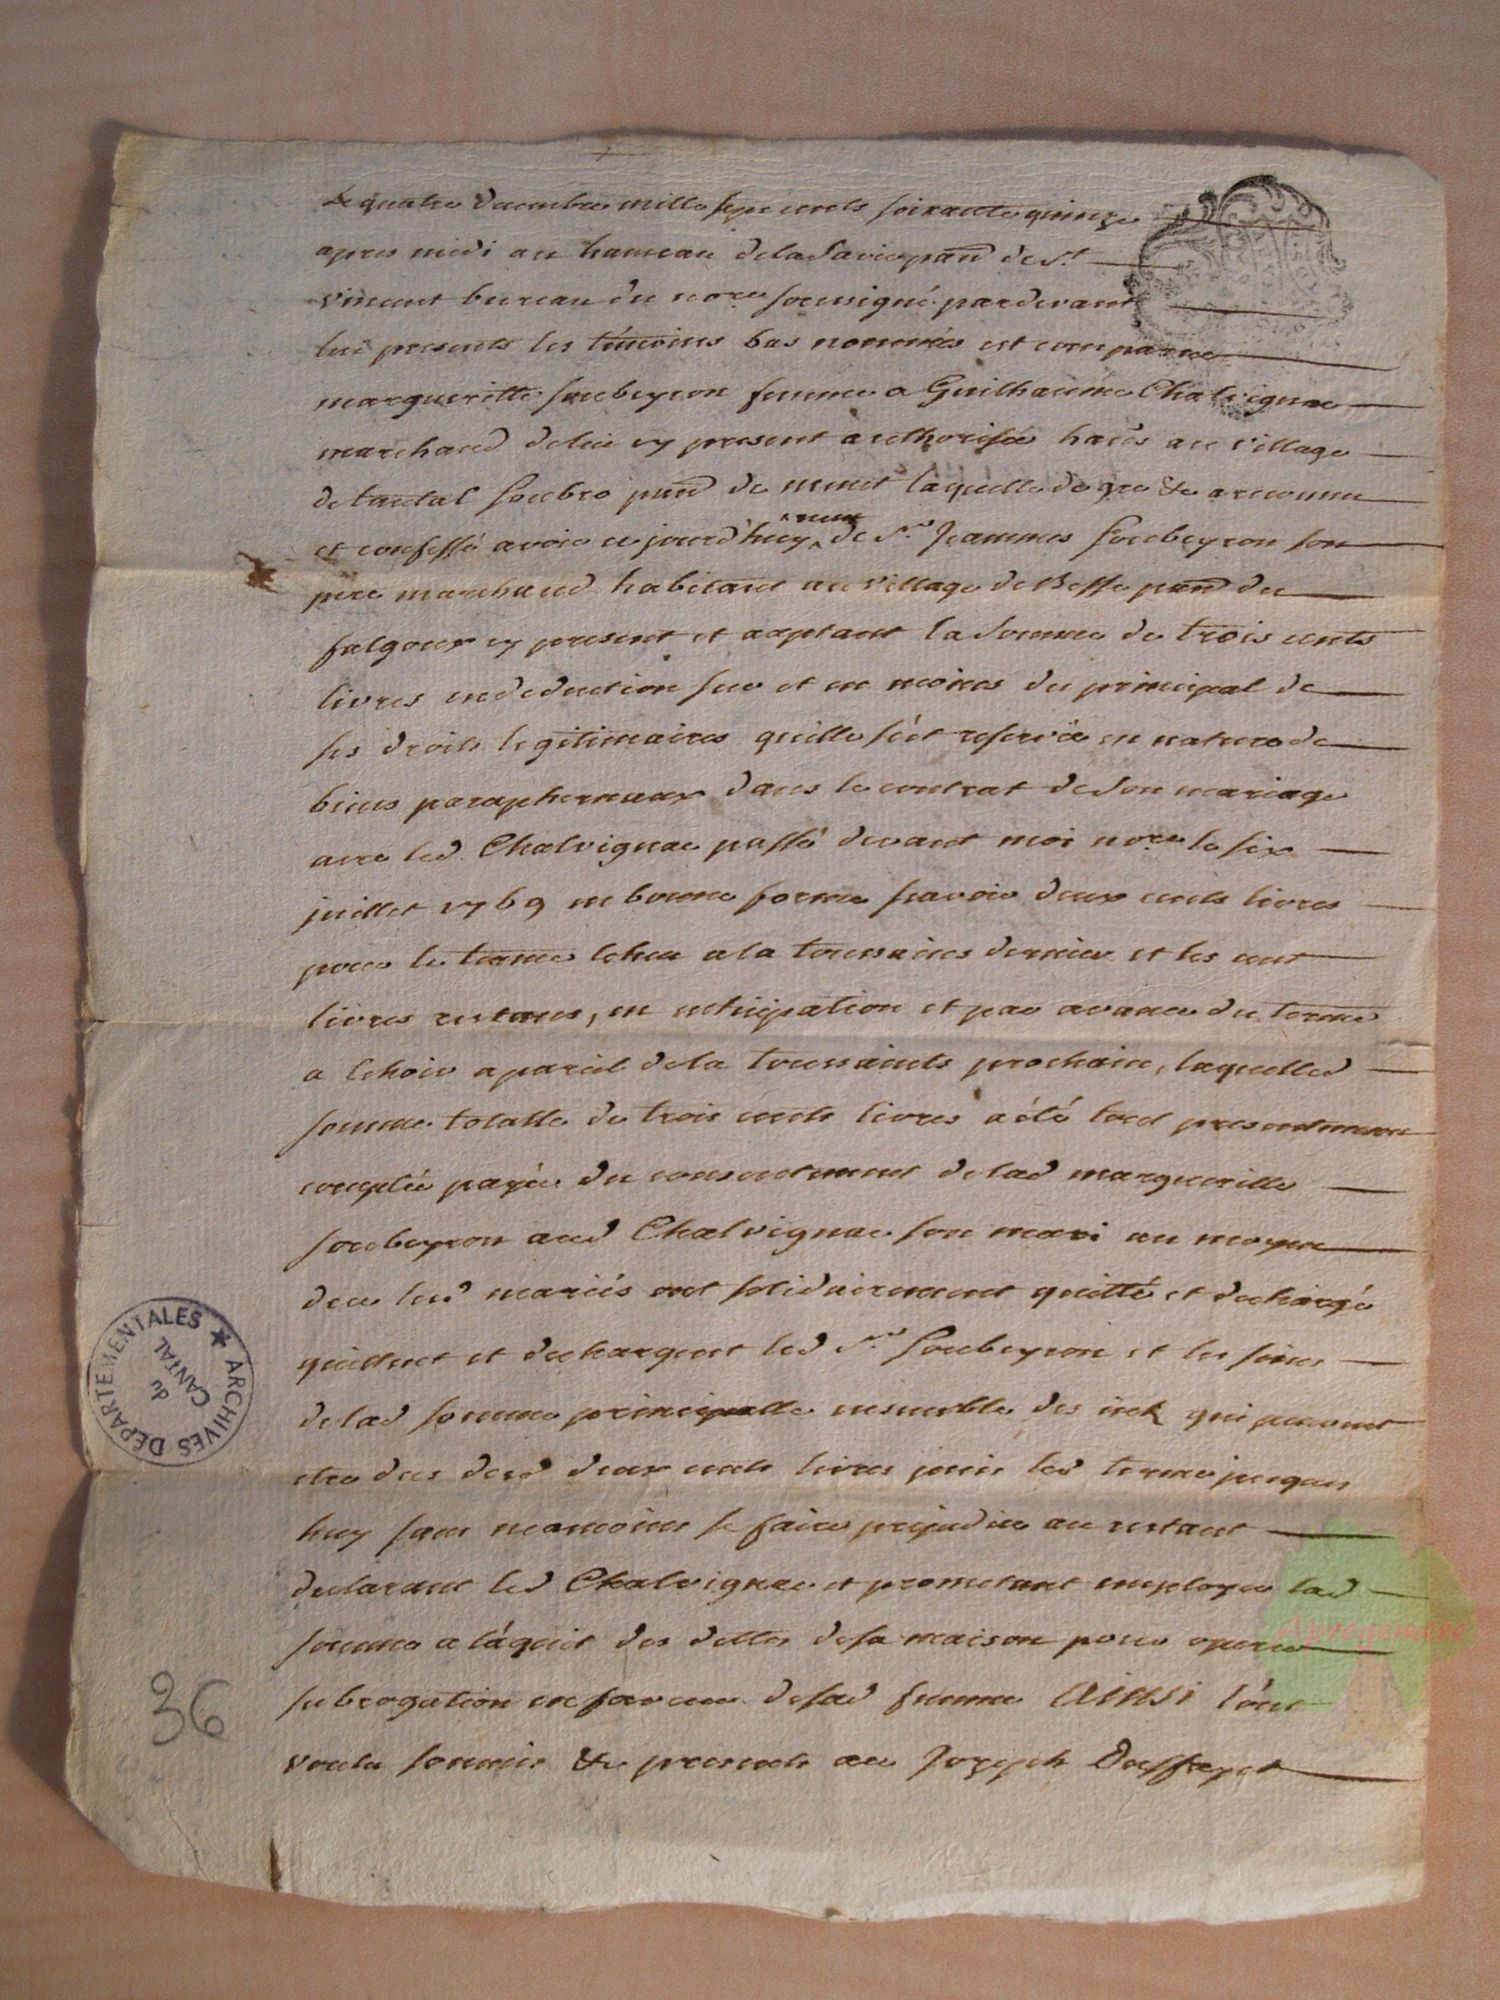 Le quatre decembre mille sept cents soixante quinze
apres midi au hameau dela Savie parr de St
vincent bureau du nore soussigné pardevant
lui presents les témoins bas nommés est comparue
margueritte soubeyron femme a Guilhaume Chalvignac
marchand delui cy present authorisée habs au village
de tautal soubro parr de menet laquelle de gre &c a reconnu
et confessé avoir ce jourd'huy reçu de Sr Jeammes Soubeyron son
pere marchand habitant au village de Besse parr du
falgoux cy present et acptant la somme de trois cents
livres en deduction sur et en moins du principal de
ses droits legitimaires quelle s'ét reservée en nature de
biens paraphernaux dans le contrat de son mariage
avec led Chalvignac passé devant moi nore le six
juillet 1769 en bonne forme scavoir deux cents livres
pour le terme échu a la toussaints dernier et les cent
livres restans, en anticipation et par avance du terme
a échoir a pareil dela toussaints prochain, laquelled
somme totalle de trois cents livres a été toud presentement
comptée payée du consentement delad margueritte
soubeyron aud Chalvignac son mari au moyen
de ce lesd mariés ont solidairement quitté et dechargé
quittent et dechargent led Sr Soubeyron et les siens
delad somme principalle ensemble des intes qui peuvent
etre dus desd deux cents livres puis led terme jusques
huy sans neanmoins se faire prejudice au restant
declarant led Chalvignac et prometant employer lad
somme a láquit des dettes desa maison pour operer
subrogation en faveur de sad femme Ainsi l'ont
voulu soumis &c presents au Joseph Duffayet
ARCHIVES DEPARTEMENTALES
du
CANTAL
36
Aprogemere